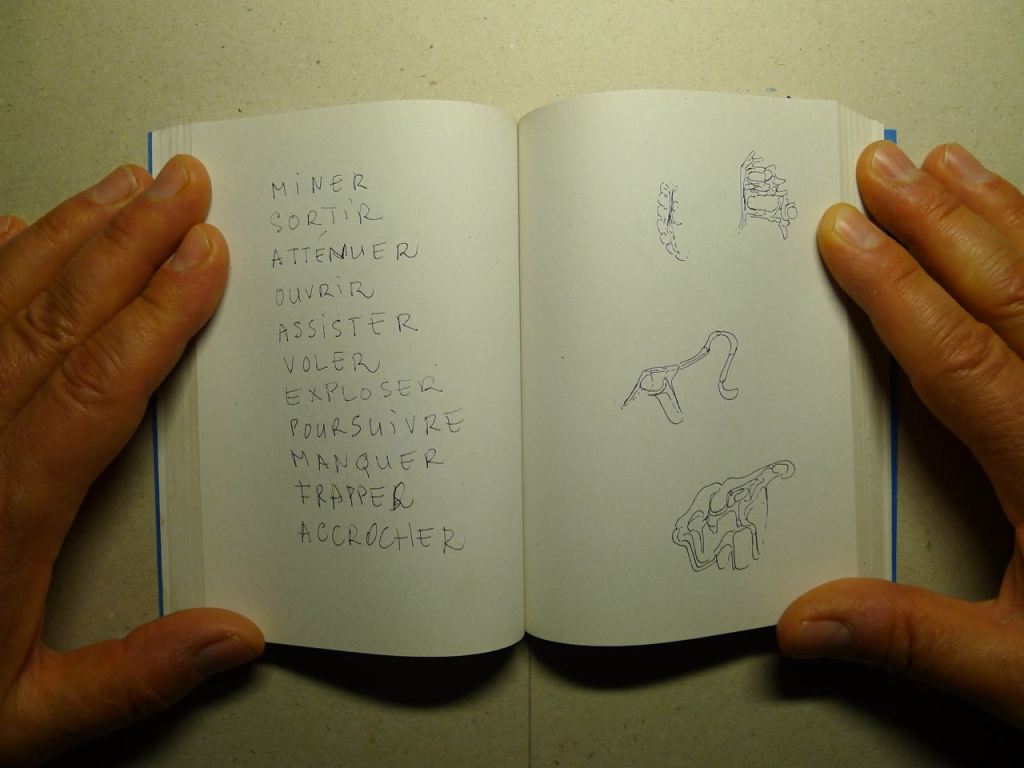 MINER
SORTIR
ATTÉNUER
OUVRIR
ASSISTER
VOLER
EXPLOSER
POURSUIVRE
MANQUER
FRAPPER
ACCROCHER